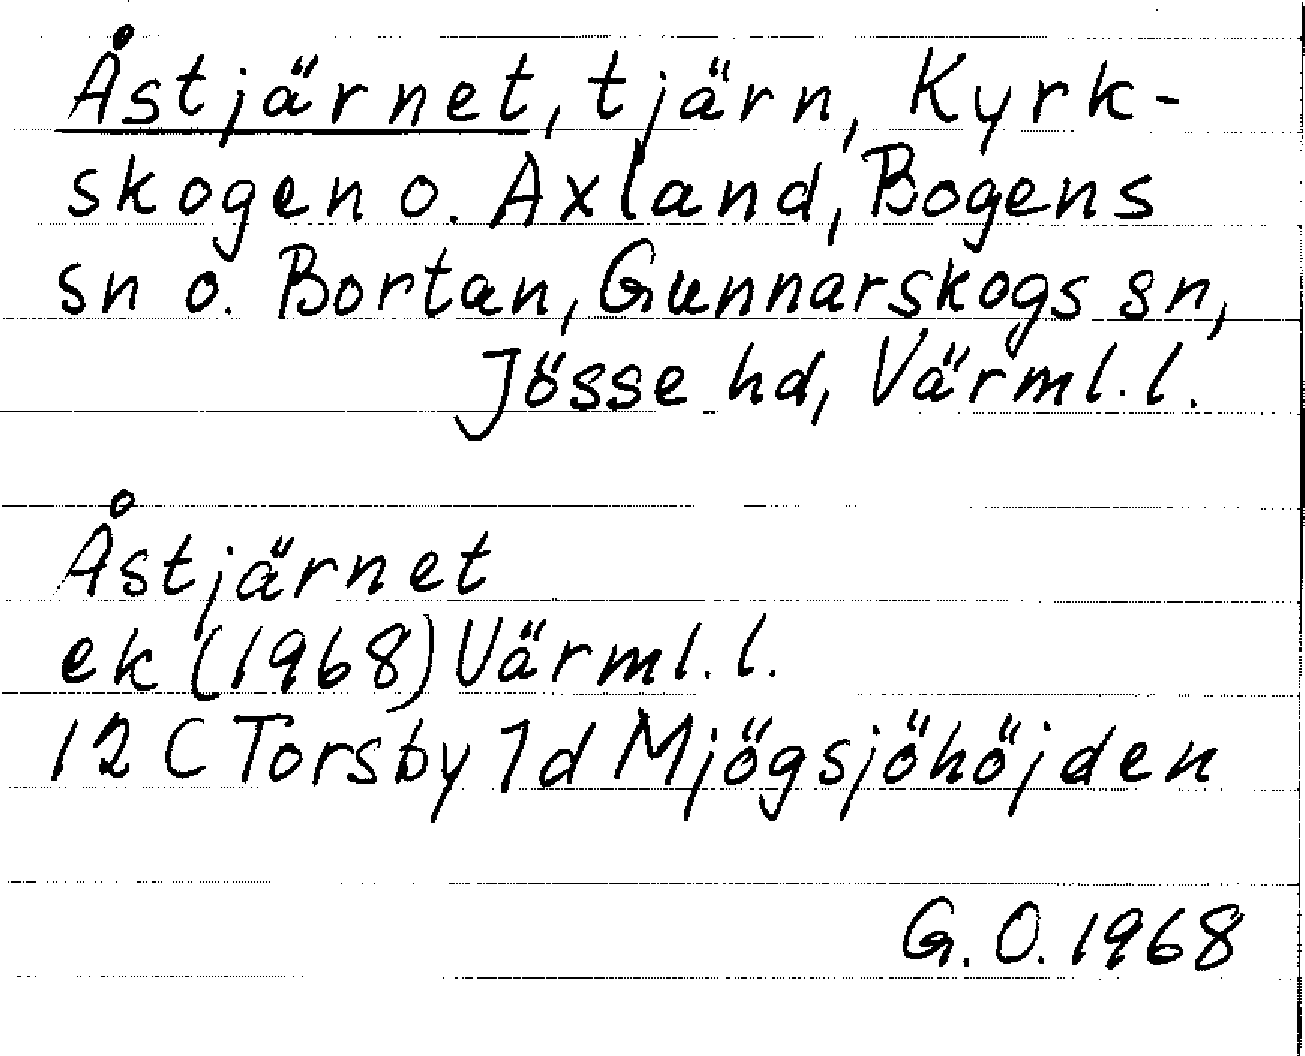 Åstjärnet, tjärn, Kyrk-
skogen o. Axland, Bogens
sn o. Bortan, Gunnarskogs sn,
Jösse hd, Värml. l.
Åstjärnet
ek (1968) Värml. l.
12 C Torsby 1d Mjögsjöhöjden
G. O. 1968